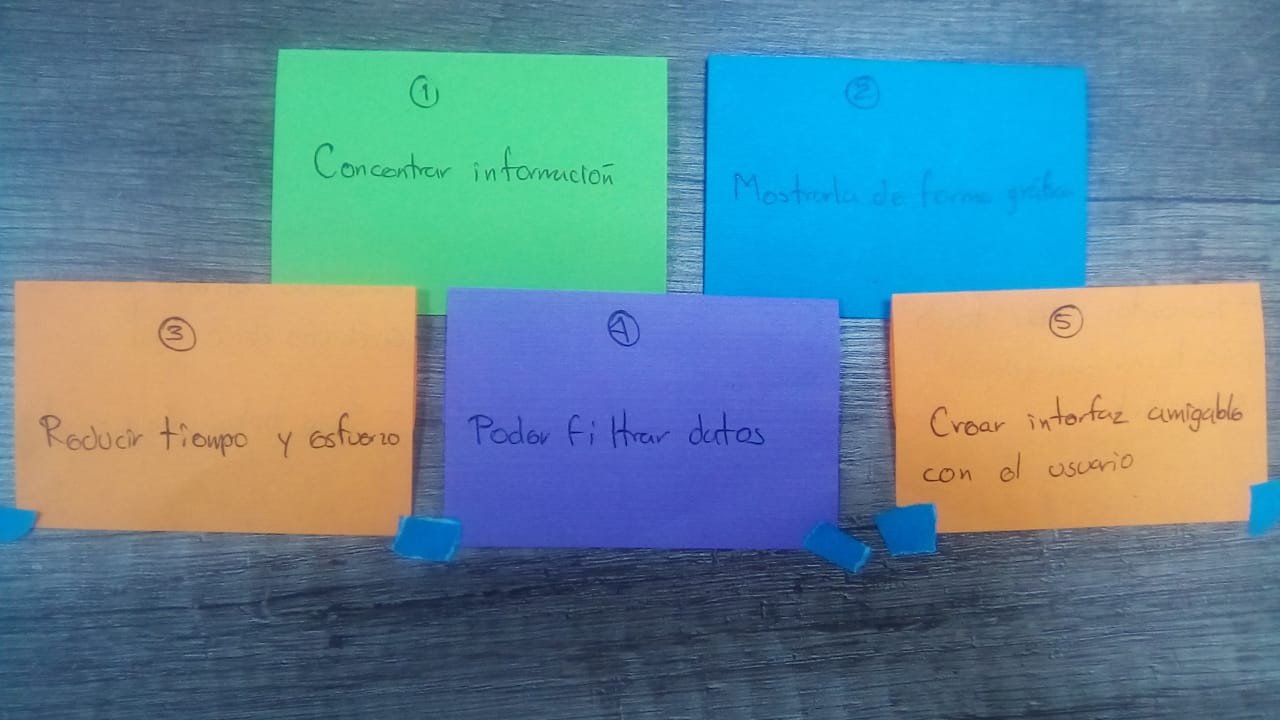 1
Concentrar información
2
Mostrarla de forma gráfica
3
Reducir tiempo y esfuerzo
4
Poder filtrar datos
5
Crear interfaz amigable
con el usuario